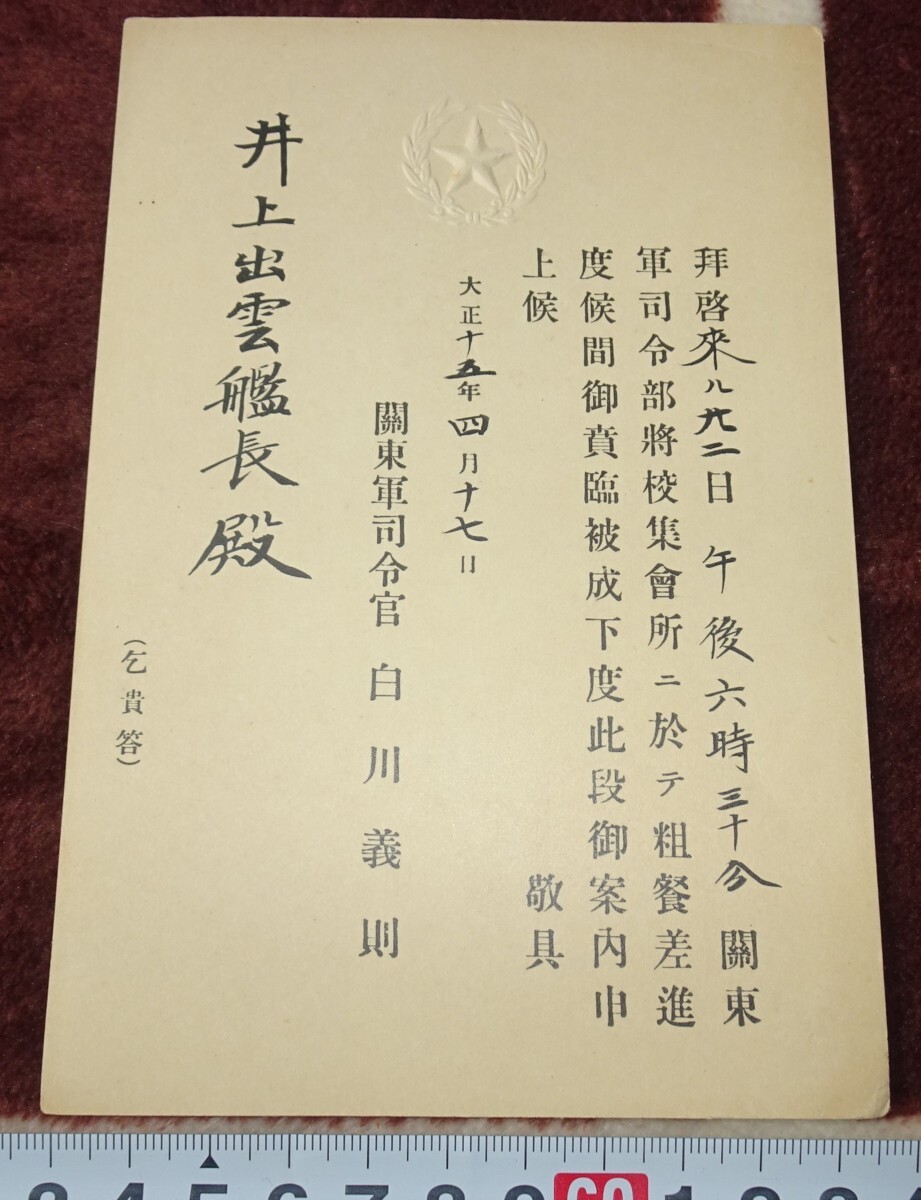 拜啓來ル廿二日 午後六時三十分 關東
軍司令部將校集會所ニ於テ粗餐差進
度候間御賁臨被成下度此段御案内申
上候 敬具
大正十五年四月十七日
關東軍司令官 白川義則
井上出雲艦長殿
(乞貴答)
3 4 5 6 7 8 9 60 1 2